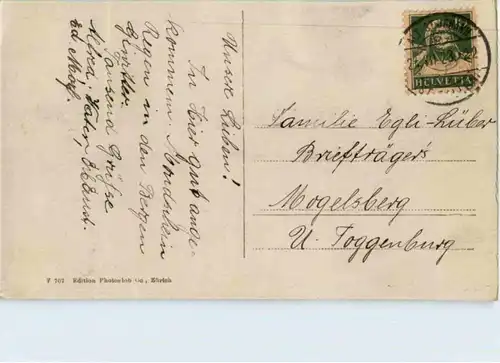 Unsere Lieben!
Sn Hier gut ange-
kommen. Mondschein
Regen in den Bergen
Gewitter.
Tausend Grüsse
Vater,
HELVETIA
Familie Egli-Lüber
Briefträger's
Mogelsberg
U. Toggenburg
F 707 Edition Photoglob Co., Zürich